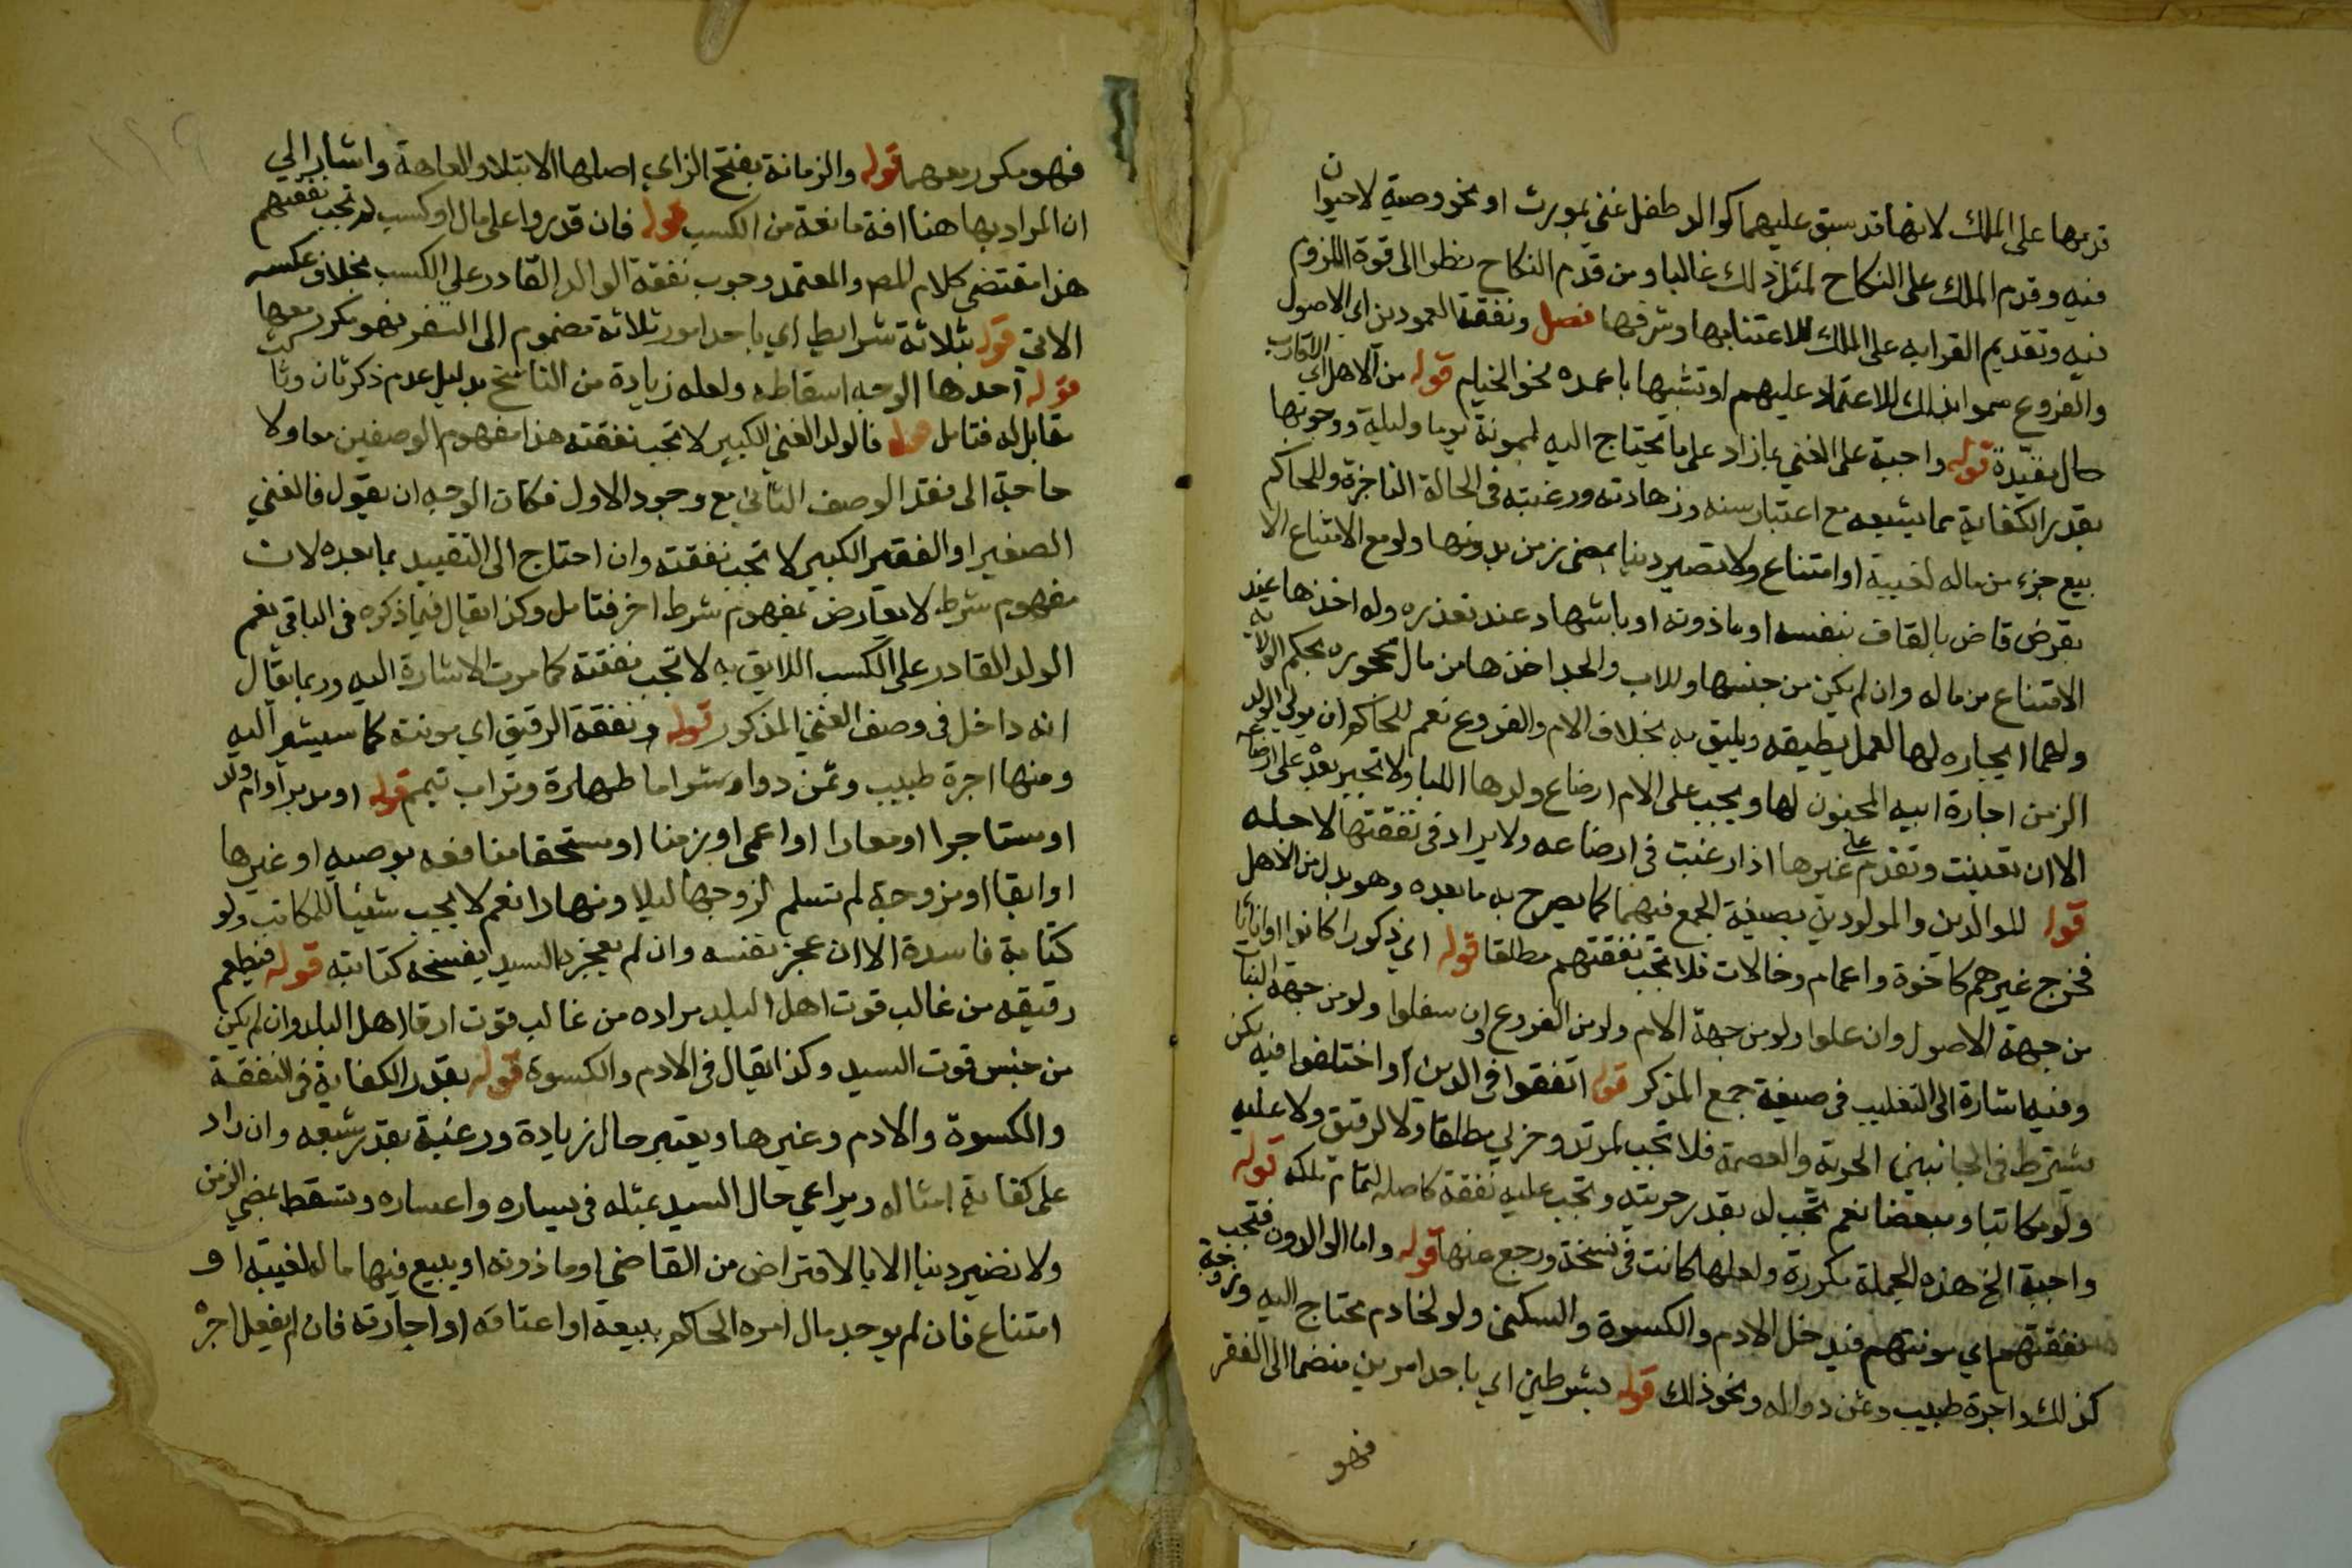 قدمها على الملك لانها قد سبق عليهما كوالد طفل غني بمورث او نحو وصية لاحيوان
فيه وقدم الملك على النكاح لمثل ذلك غالبا ومن قدم النكاح نظر الى قوة اللزوم
فيه وتقديم القرابه على الملك للاعتنا بها وشرفها فصل ونفقة العمودين اي الاصول
والفروع سموا بذلك للاعتماد عليهم او تشبيها باعمدة نحو الخيام قوله من الاهل اي الاقارب
حال مقيدة قوله واجبة على الغني بما زاد على ما يحتاج اليه لممونة يوما وليلة ووجوبها
بقدر الكفاية مما يشبعه مع اعتبار سنه وزهادته ورغبته في الحالة الناجزة وللحاكم
بيع جزء من ماله لغيبة او امتناع ولا تصير دينا بمضي زمن بدونها ولو مع الامتناع الا
بقرض قاض بالقاف بنفسه او ماذونه او باشهاد عند تعذره وله اخذها عند
الامتناع من ماله وان لم يكن من جنسها وللاب والجد اخذها من مال محجوره بحكم الولاية
ولهما ايجاره لها لعمل يطيقه ويليق به بخلاف الام والفروع نعم للحاكم ان يولي الولد
الزمن اجارة ابيه المجنون لها ويجب على الام ارضاع ولدها اللبا ولا تجبر بعد على ارضاعه
الا ان تعينت وتقدم على غيرها اذا رغبت في ارضاعه ولا يزاد في نفقتها لاجله
قوله للوالدين والمولودين بصيغة الجمع فيهما كما يصرح به ما بعده وهو بدل من الاهل
فخرج غيرهم كاخوة واعمام وخالات فلا تجب نفقتهم مطلقا قوله اي ذكورا كانوا او اناثا
من جهة الاصول وان علوا ولو من جهة الام ولو من الفروع وان سفلوا ولو من جهة البنات
وفيه اشارة الى التغليب في صيغة جمع المذكر قوله اتفقوا في الدين او اختلفوا فيه لكن
يشترط في الجانبين الحرية والعصمة فلا تجب لمرتد وحربي مطلقا ولا لرقيق ولا عليه
ولو مكاتبا ومبعضا نعم تجب له بقدر حريته وتجب عليه نفقة كاملة لتمام ملكه قوله
واجبة الخ هذه الجملة مكررة ولعلها كانت في نسخة ورجع عنها قوله واما الوالدون فتجب
نفقتهم اي مونتهم فيدخل الادم والكسوة والسكنى ولو لخادم محتاج اليه وزوجة
كذلك واجرة طبيب وثمن دوا له ونحو ذلك قوله بشرطين اي باحد امرين منضما الى الفقر
فهو
فهو مكرر معهما قوله والزمانة بفتح الزاي اصلها الابتلا والعاهة واشار الي
ان المراد بها هنا افة مانعة من الكسب قوله فان قدروا على مال او كسب لم تجب نفقتهم
هذا مقتضى كلام المص والمعتمد وجوب نفقة الوالد القادر على الكسب بخلاف عكسه
الاتي قوله بثلاثة شرايط اي باحد امور ثلاثة مضموم الى الفقر فهو مكرر معها
قوله احدها الوجه اسقاطه ولعله زيادة من الناسخ بدليل عدم ذكر ثان وثالث
مقابل له فتامل قوله فالولد الغني الكبير لا تجب نفقته هذا مفهوم الوصفين معا ولا
حاجة الى فقد الوصف الثاني مع وجود الاول فكان الوجه ان يقول فالغني
الصغير او الفقير الكبير لا تجب نفقته وان احتاج الى التقييد بما بعده لان
مفهوم شرط لا يعارض بمفهوم شرط اخر فتامل وكذا يقال فيما ذكره في الباقي نعم
الولد القادر على الكسب اللايق به لا تجب نفقته كما مرت الاشارة اليه وربما يقال
انه داخل في وصف الغني المذكور قوله ونفقة الرقيق اي مونته كما سيشير اليه
ومنها اجرة طبيب وثمن دوا وشرا ما طهارة وتراب تيمم قوله او مدبر او ام ولد
او مستاجرا او معارا او اعمى او زمنا او مستحقا منافعه بوصيه او غيرها
او ابقا او مزوجة لم تسلم لزوجها ليلا ونهارا نعم لا يجب شيئا للمكاتب ولو
كتابة فاسدة الا ان عجز نفسه وان لم يعجزه السيد بفسخه كتابته قوله فيطعم
رقيقه من غالب قوت اهل البلد مراده من غالب قوت ارقا اهل البلد وان لم يكن
من جنس قوت السيد وكذا يقال في الادم والكسوة قوله بقدر الكفاية في النفقة
والكسوة والادم وغيرها ويعتبر حال زيادة ورغبة بقدر شبعه وان زاد
على كفاية امثاله ويراعي حال السيد بمثله في يساره واعساره وتسقط بمضي الزمن
ولا تصير دينا الا بالاقتراض من القاضي او ماذونه او يبيع فيها ماله لغيبته او
امتناع فان لم يوجد مال امره الحاكم ببيعه او اعتاقه او اجارته فان لم يفعل اجره